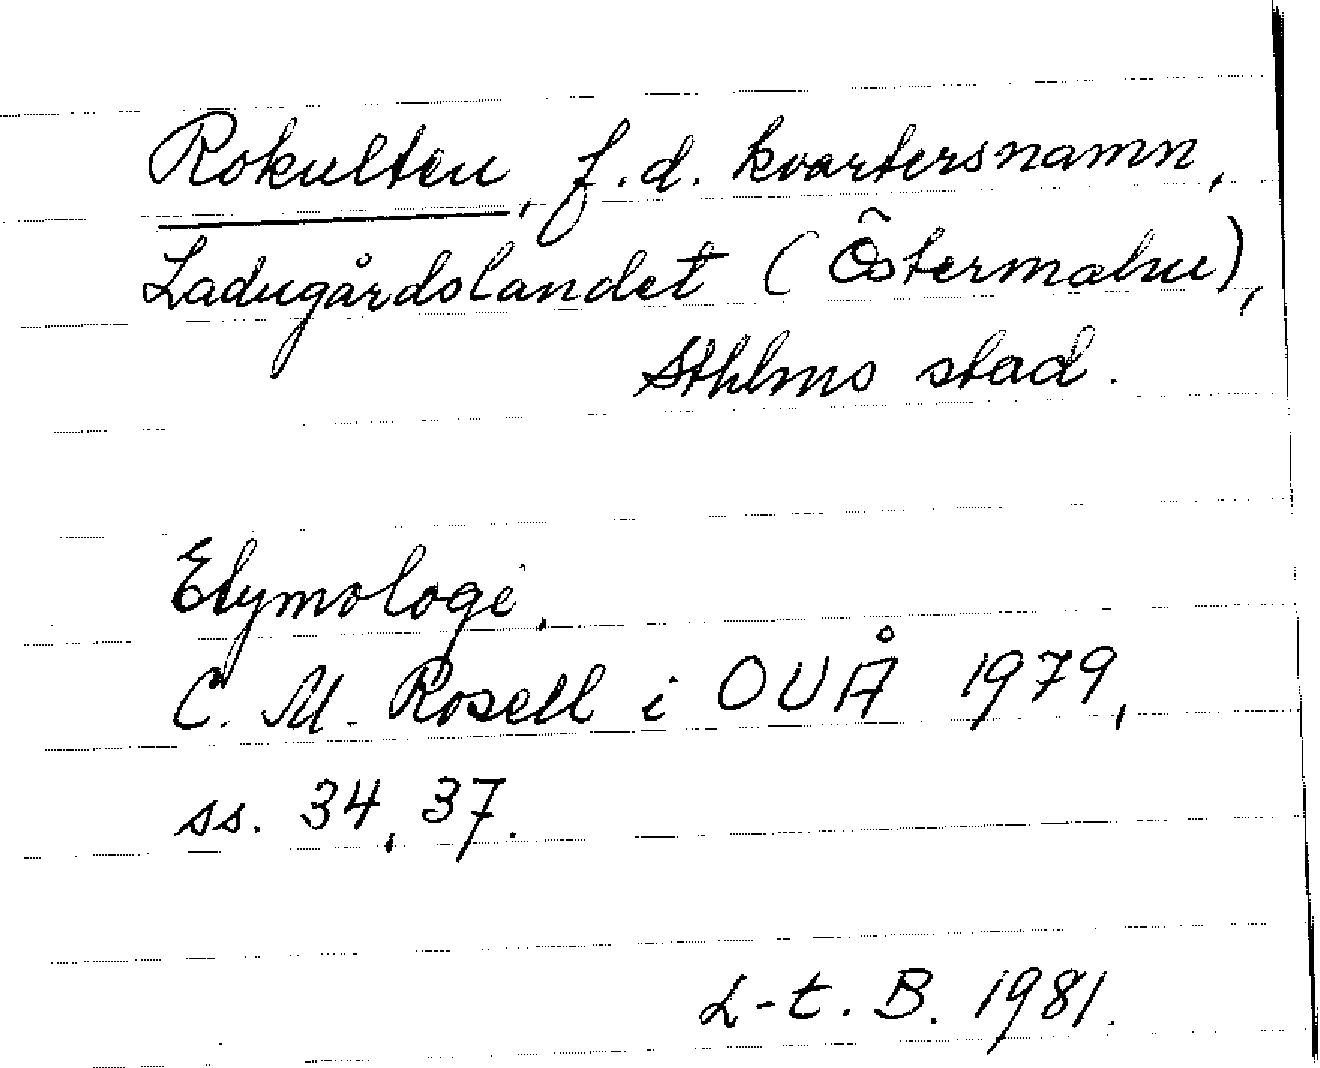 Rokulten, f.d. kvartersnamn,
Ladugårdslandet (Östermalm),
Sthlms stad.
Etymologi.
C. M. Rosell i OUÅ 1979,
ss. 34, 37.
L-t. B. 1981.